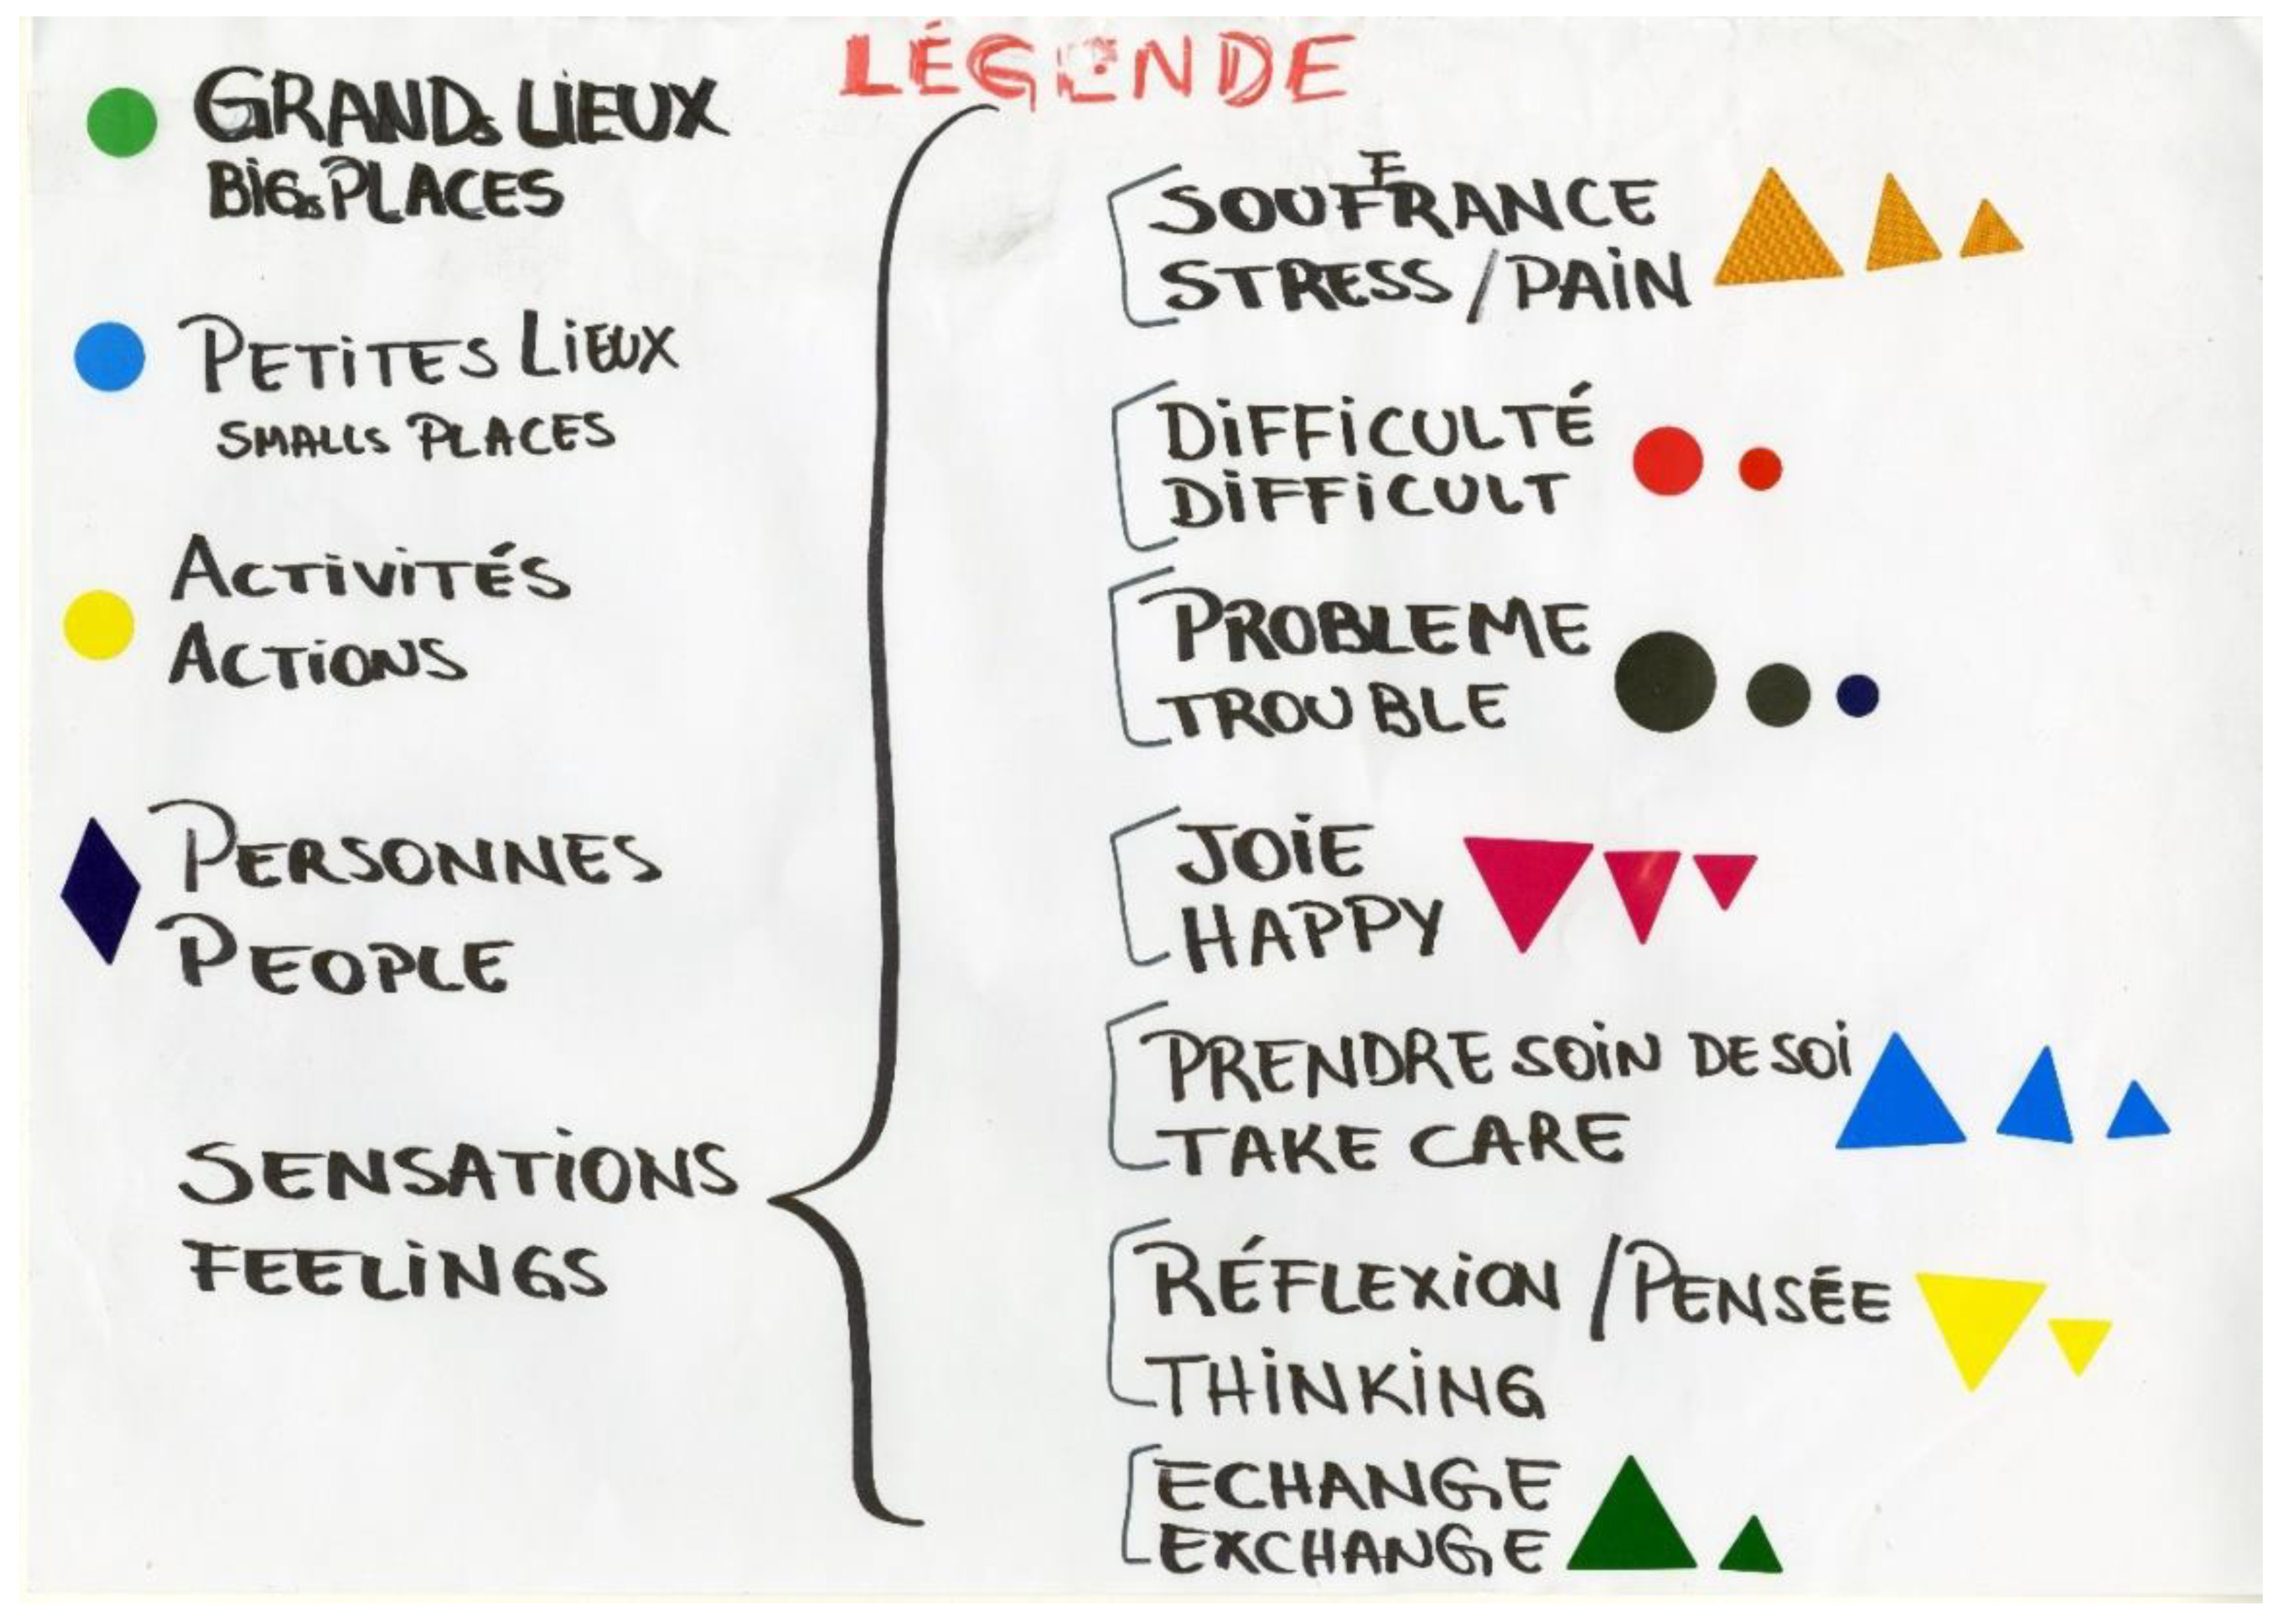 LÉGENDE
GRANDs LiEUX
BiGs PLACES
PETiTES LiEUX
SMALLs PLACES
ACTiViTÉS
ACTiONS
PERSONNES
PEOPLE
SENSATiONS
FEELiNGS
SOUFFRANCE
STRESS / PAiN
DiFFiCULTÉ
DiFFiCULT
PROBLEME
TROUBLE
JOiE
HAPPY
PRENDRE SOiN DE SOi
TAKE CARE
RÉFLEXiON / PENSÉE
THiNKiNG
ECHANGE
EXCHANGE